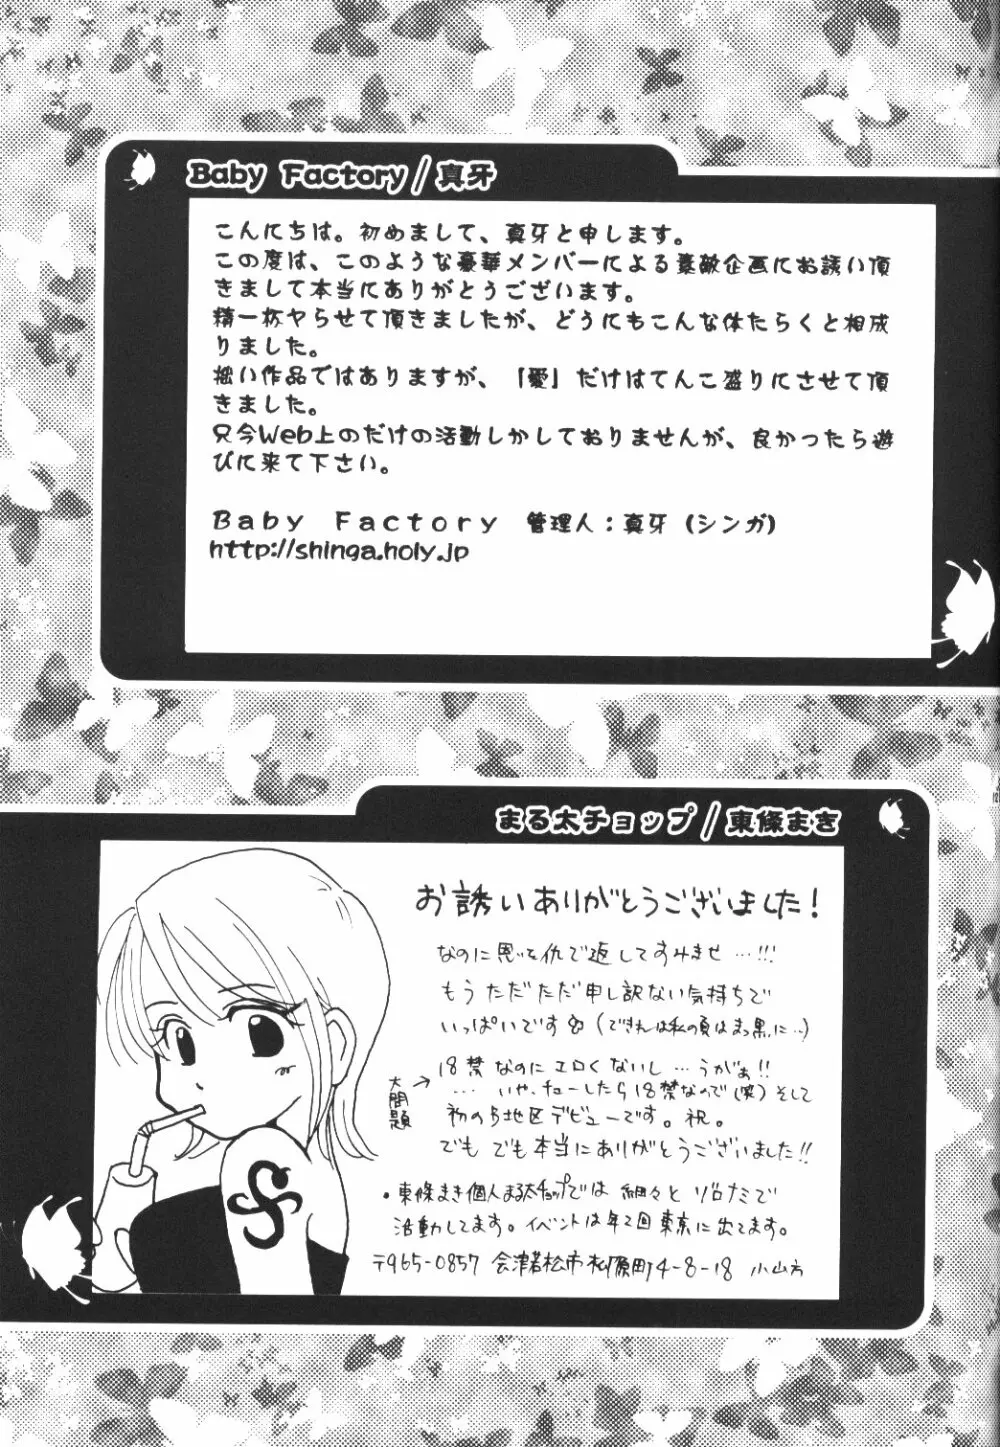 Baby Factory/真牙
こんにちは。初めまして、真牙と申します。
この度は、このような豪華メンバーによる素敵企画にお誘い頂
きまして本当にありがとうございます。
精一杯ヤらせて頂きましたが、どうにもこんな体たらくと相成
りました。
拙い作品ではありますが、「愛」だけはてんこ盛りにさせて頂
きました。
只今Web上のだけの活動しかしておりませんが、良かったら遊
びに来て下さい。
Baby Factory 管理人:真牙(シンガ)
http://shinga.holy.jp
まる太チョップ/東條まき
お誘いありがとうございました!
なのに恩を仇で返してすみませ…!!!
もうただただ申し訳ない気持ちで
いっぱいです(できれば私の頁はまっ黒に…)
大問題→
18禁なのにエロくないし…うがぁ!!
…いや、チューしたら18禁なので(笑)そして
初の地区デビューです。祝。
でもでも本当にありがとうございました!!
・東條まき個人まる太チョップでは細々とゾロナミで
活動してます。イベントは年2回東京に出てます。
〒965-0857 会津若松市柳原町4-8-18 小山方